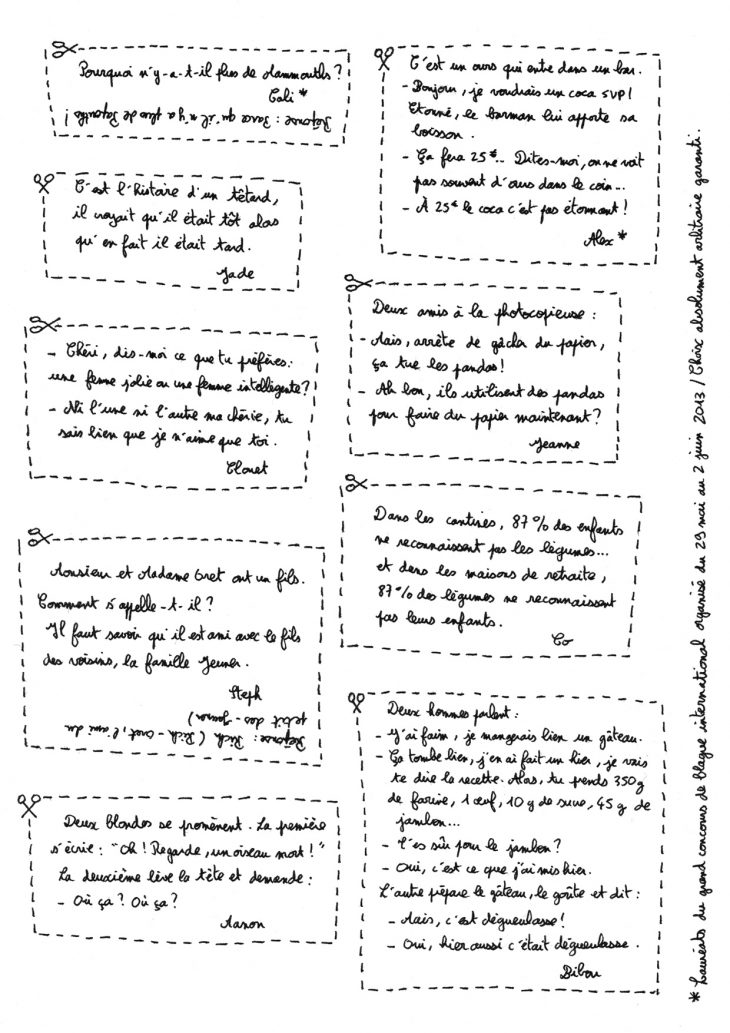 Pourquoi n'y-a-t-il plus de Mammouths ?
Cali *
Réponse : Parce qu'il n'y a plus de Papouths !
C'est l'histoire d'un têtard,
il croyait qu'il était tôt alors
qu'en fait il était tard.
Jade
- Chéri, dis-moi ce que tu préfères :
une femme jolie ou une femme intelligente ?
- Ni l'une ni l'autre ma chérie, tu
sais bien que je n'aime que toi.
Clouet
Monsieur et Madame Oret ont un fils.
Comment s'appelle-t-il ?
Il faut savoir qu'il est ami avec le fils
des voisins, la famille Jeuner.
Steph
Réponse : Rich (Rich-Oret, l'ami du
petit dej-Jeuner)
Deux blondes se promènent. La première
s'écrie : "Oh ! Regarde, un oiseau mort !"
La deuxième lève la tête et demande :
- Où ça ? Où ça ?
Manon
C'est un ours qui entre dans un bar.
- Bonjour, je voudrais un coca SVP !
Etonné, le barman lui apporte sa
boisson.
- Ça fera 25€... Dites-moi, on ne voit
pas souvent d'ours dans le coin...
- À 25€ le coca c'est pas étonnant !
Alex *
Deux amis à la photocopieuse :
- Mais, arrête de gâcher du papier,
ça tue les pandas !
- Ah bon, ils utilisent des pandas
pour faire du papier maintenant ?
Jeanne
Dans les cantines, 87 % des enfants
ne reconnaissent pas les légumes...
et dans les maisons de retraite,
87 % des légumes ne reconnaissent
pas leurs enfants.
Co
Deux hommes parlent :
- J'ai faim, je mangerais bien un gâteau.
- Ça tombe bien, j'en ai fait un hier, je vais
te dire la recette. Alors, tu prends 350 g
de farine, 1 œuf, 10 g de sucre, 45 g de
jambon...
- T'es sûr pour le jambon ?
- Oui, c'est ce que j'ai mis hier.
L'autre prépare le gâteau, le goûte et dit :
- Mais, c'est dégueulasse !
- Oui, hier aussi c'était dégueulasse.
Bibou
* Lauréats du grand concours de blague international organisé du 29 mai au 2 juin 2013 / Choix absolument arbitraire garanti.